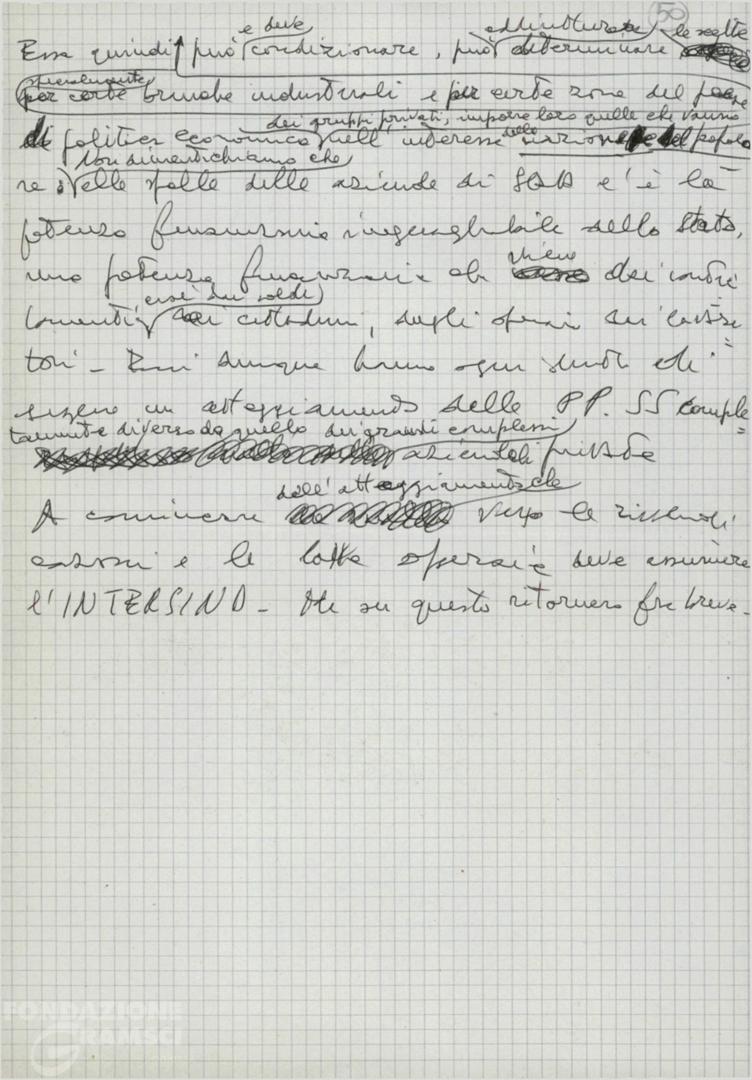 50
e deve
addirittura le scelte
Essa quindi può condizionare, può determinare
specialmente
per certe branche industriali e per certe zone del paese
dei gruppi privati, imporre loro quelle che vanno
di politica economica nell'interesse della nazione e del popolo
Non dimentichiamo che
nelle spalle delle aziende di Stato c'è la
potenza finanziaria ineguagliabile dello Stato,
una potenza finanziaria che viene dai contri
cioè dai soldi
buenti, dei cittadini, dagli operai dai lavora=
tori - Essi dunque hanno ogni diritto di
esigere un atteggiamento delle PP. SS comple=
tamente diverso da quello dei grandi complessi
aziendali privati
dall'atteggiamento che
A cominciare verso le rivendi
cazioni e le lotte operaie deve assumere
l'INTERSIND - Ma su questo ritornerò fra breve -
FONDAZIONE
GRAMSCI